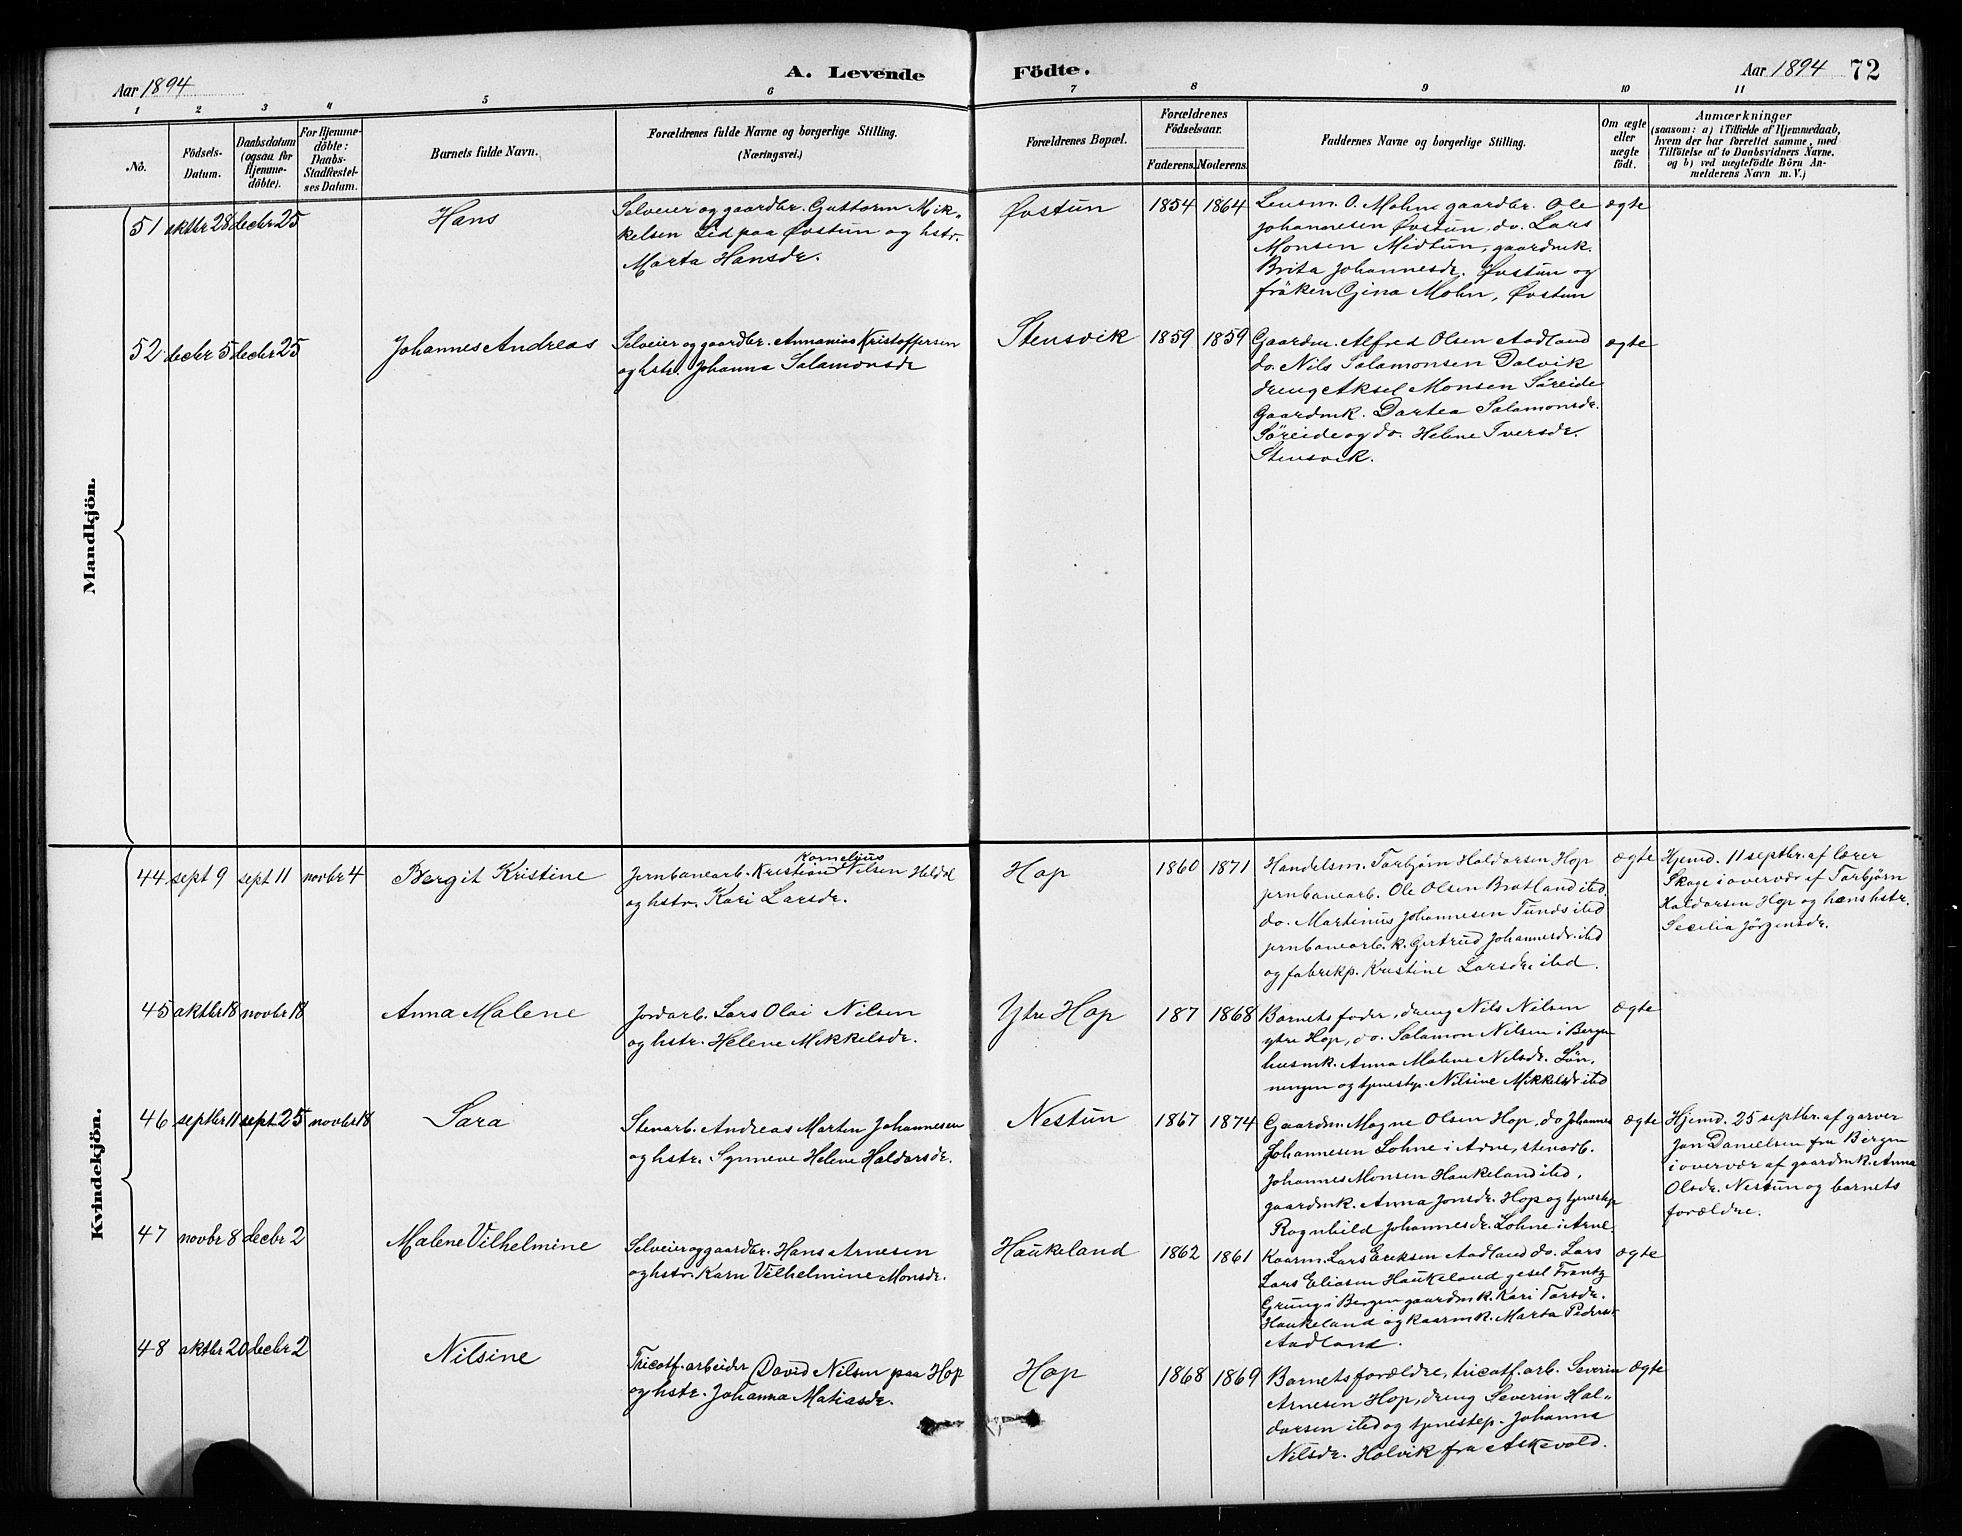 Aar 1894
A. Levende
Födte.
Aar 1894 72
1 2 3 4 5 6 7 8 9 10 11
No.
Födsels-
Datum.
Daabsdatum
(ogsaa for
Hjemme-
döbte).
For Hjemme-
döbte:
Daabs-
Stadfæstel-
ses Datum.
Barnets fulde Navn.
Forældrenes fulde Navne og borgerlige Stilling.
(Næringsvei.)
Forældrenes Bopæl.
Forældrenes
Födselsaar.
Faderens. Moderens.
Faddernes Navne og borgerlige Stilling.
Om ægte
eller
uægte
födt.
Anmærkninger
(saasom: a) i Tilfælde af Hjemmedaab,
hvem der har forrettet samme, med
Tilföielse af to Daabsvidners Navne.
og b) ved uægtefödte Börn An-
melderens Navn m. V.)
Mandkjön.
51 oktbr 28 decbr 25
Hans
Selveier og gaardbr. Guttorm Mik-
kelsen Lid paa Øvstun og hstr.
Marta Hansdr.
Øvstun
1854 1864
Lensm. O. Mohn gaardbr. Ole
Johannesen Øvstun, do. Lars
Monsen Midtun, gaardmk.
Brita Johannesdr. Øvstun og
fröken Gina Mohn, Øvstun
ægte
52 decbr 5 decbr 25
Johannes Andreas
Selveier og gaardbr. Annanias Kristoffersen
og hstr. Johanna Salamonsdr
Stensvik
1859 1859
Gaardm. Alfred Olsen Aadland
do. Nils Salamonsen Dalvik
dreng Aksel Monsen Søreide
Gaardmk. Dortea Salamonsdr.
Søreide og do. Helene Iversdr.
Stensvik.
ægte
Kvindekjön.
44 sept 9 sept 11 novbr 4
Bergit Kristine
Kornelius
Jernbanearb. Kristian Nilsen Heldal
og hstr. Kari Larsdr.
Hop
1860 1871
Handelsm. Torbjørn Haldorsen Hop
jernbanearb. Ole Olsen Bratland itsd
do. Martinus Johannesen Tunds itsd
jernbanearb. k. Gertrud Johannesdr. itsd
og fabrikp. Kristine Larsdr. itsd.
ægte
Hjemd. 11 septbr. af lærer
Skage i overvær af Torbjørn
Haldorsen Hop og hans hstr.
Secilia Jørgensdr.
45 oktbr 18 novbr 18
Anna Malene
Jordarb. Lars Olai Nilsen
og hstr. Helene Mikkelsdr.
Ytre Hop
187 1868
Barnets fader, dreng Nils Nilsen
ytre Hop, do. Salamon Nilsen i Bergen
husmk. Anna Malene Nilsdr. Løn-
ningen og tjenestp. Nilsine Mikkelsdr itsd
ægte
46 septbr 11 sept. 25 novbr 18
Sara
Stenarb. Andreas Martin Johannesen
og hstr. Synneve Helene Haldorsdr.
Nestun
1867 1874
Gaardm. Mogne Olsen Hop, do Johannes
Johannesen Lohne i Arne, stenarb.
Johannes Monsen Haukeland itsd,
gaardmk. Anna Jonsdr. Hop og tjenestep
Rognhild Johannesdr. Lohne i Arne
ægte
Hjemd. 25 septbr. af garver
Jan Danielsen fra Bergen
i overvær af gaardmk. Anna
Olsdr. Nestun og barnets
forældre.
47 novbr 8 decbr 2
Malene Vilhelmine
Selveier og gaardbr. Hans Arnesen
og hstr. Karn Vilhelmine Monsdr.
Haukeland
1862 1861
Kaarm. Lars Eriksen Aadland do. Lars
Lars Eliasen Haukeland gesel Frantz
Grung i Bergen gaardmk. Kari Torsdr.
Haukeland og kaarmk. Marta Pedersd
Aadland.
ægte
48 oktbr 20 decbr 2
Nilsine
Tricotf.arbeider David Nilsen paa Hop
og hstr. Johanna Matiasdr.
Hop
1868 1869
Barnets forældre, tricotf. arb. Severin
Arnesen Hop, dreng Severin Hal-
dorsen itsd og tjenestep. Johanna
Nilsdr. Holvik fra Askevold.
ægte